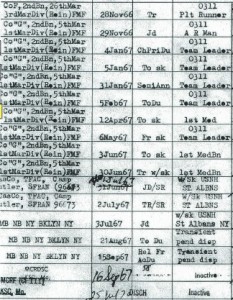 CoF, 2ndBn, 26thMar
3rdMarDiv(Rein)FMF 28Nov66 Tr 0311 Plt Runner
Co"G", 2ndBn, 5thMar
1stMarDiv(Rein)FMF 29Nov66 Jd 0311 A R Man
Co"G", 2ndBn, 5thMar
1stMarDiv(Rein)FMF 4Jan67 ChPriDu 0311 Team Leader
Co"G", 2ndBn, 5thMar
1stMarDiv(Rein)FMF 31Jan67 0311 Team Leader
Co"G", 2ndBn, 5thMar
1stMarDiv(Rein)FMF 5Feb67 ToDu 0311 Team Leader
Co"G", 2ndBn, 5thMar
1stMarDiv(Rein)FMF 12Apr67 To sk 0311 1st Med
Co"G", 2ndBn, 5thMar
1stMarDiv(Rein)FMF 6May67 Fr sk 0311 Team Leader
Co"G", 2ndBn, 5thMar
1stMarDiv(Rein)FMF 3Jun67 To sk 0311 1st MedBn
Co"G", 2ndBn, 5thMar
1stMarDiv(Rein)FMF Tr w/sk 0311 1st MedBn
Camp w/Sk USNH
Butler, SFRAN (96673) JD/SR ST ALBNS
w/Sk USNH
Butler, SFRAN 96673 2July67 TR/SR ST ALBNS
w/sk USNH
MB NB NY BKLYN NY 3Jul67 Jd St Albans NY
Transient
MB NB NY BKLYN NY 21Aug67 To Du pend disp
Hel Fr Transient
MB NB NY BKLYN NY 15Sep67 pend disp
MCRDSC
16Sep67 Jd Inactive
DISCH Inactive